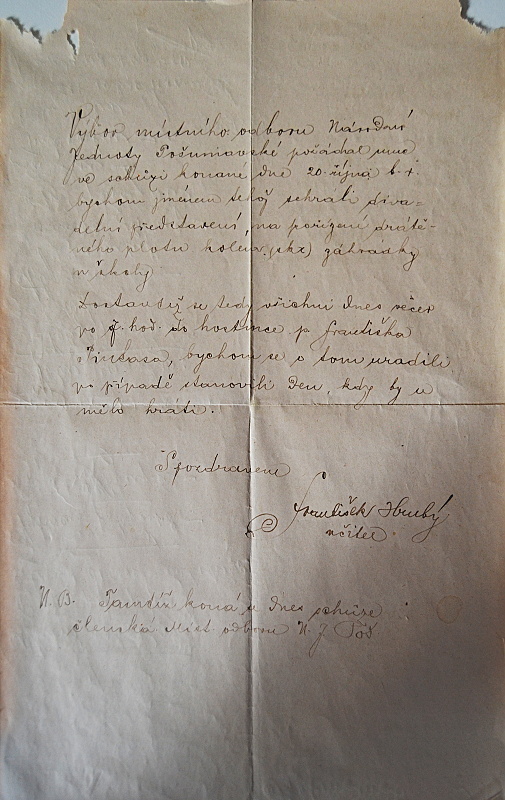 Výbor místního odboru Národní
Jednoty Pošumavské požádal mne
ve schůzi konané dne 20. října b. r.
bychom jménem téhož sehráli diva-
delní představení, na pořízení drátě-
ného plotu kolem záhrádky
u školy
Dostavtež se tedy všichni dnes večer
po 7. hod. do hostince p. Františka
bychom se o tom uradili,
po případě stanovili den, kdy by se
mělo hráti.
S pozdravem
František Hrubý
učitel
N. B. Tamtéž koná se dnes schůze
členská Míst. odboru N. J. Poš